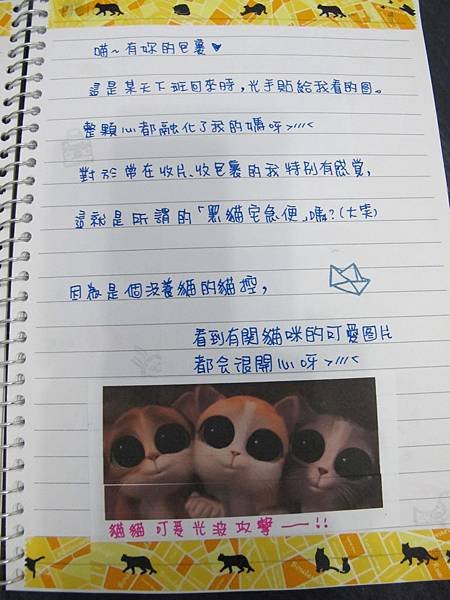 喵~有妳的包裹♥
這是某天下班回來時,光手貼給我看的图。
整顆心都融化了我的媽呀>///<
對於常在收片、收包裹的我特別有感覺,
這就是所謂的「黑貓宅急便」嗎?(大笑)
因為是個沒養貓的貓控,
看到有関貓咪的可愛图片
都会很開心呀>///<
貓貓可愛光波攻擊——!!